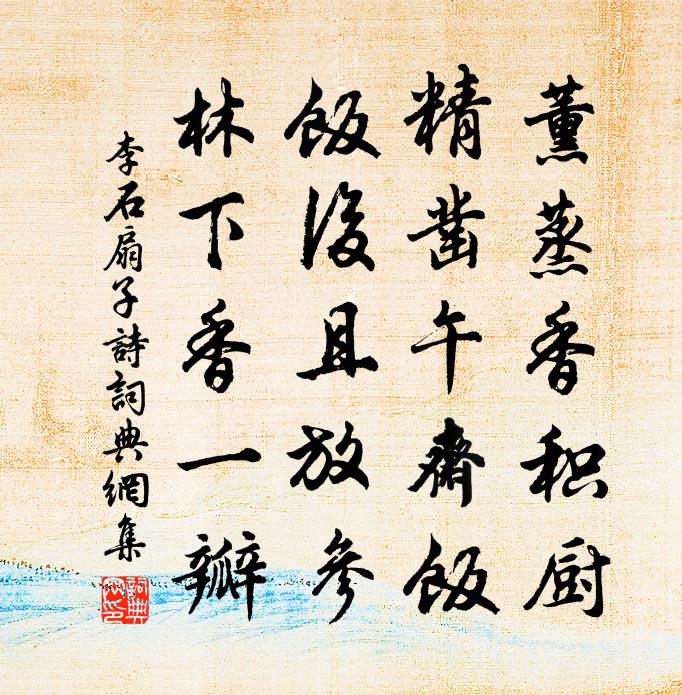 薰蒸香积厨
精凿午齋飯
飯後且放参
林下香一瓣
李石扇子詩詞典網集